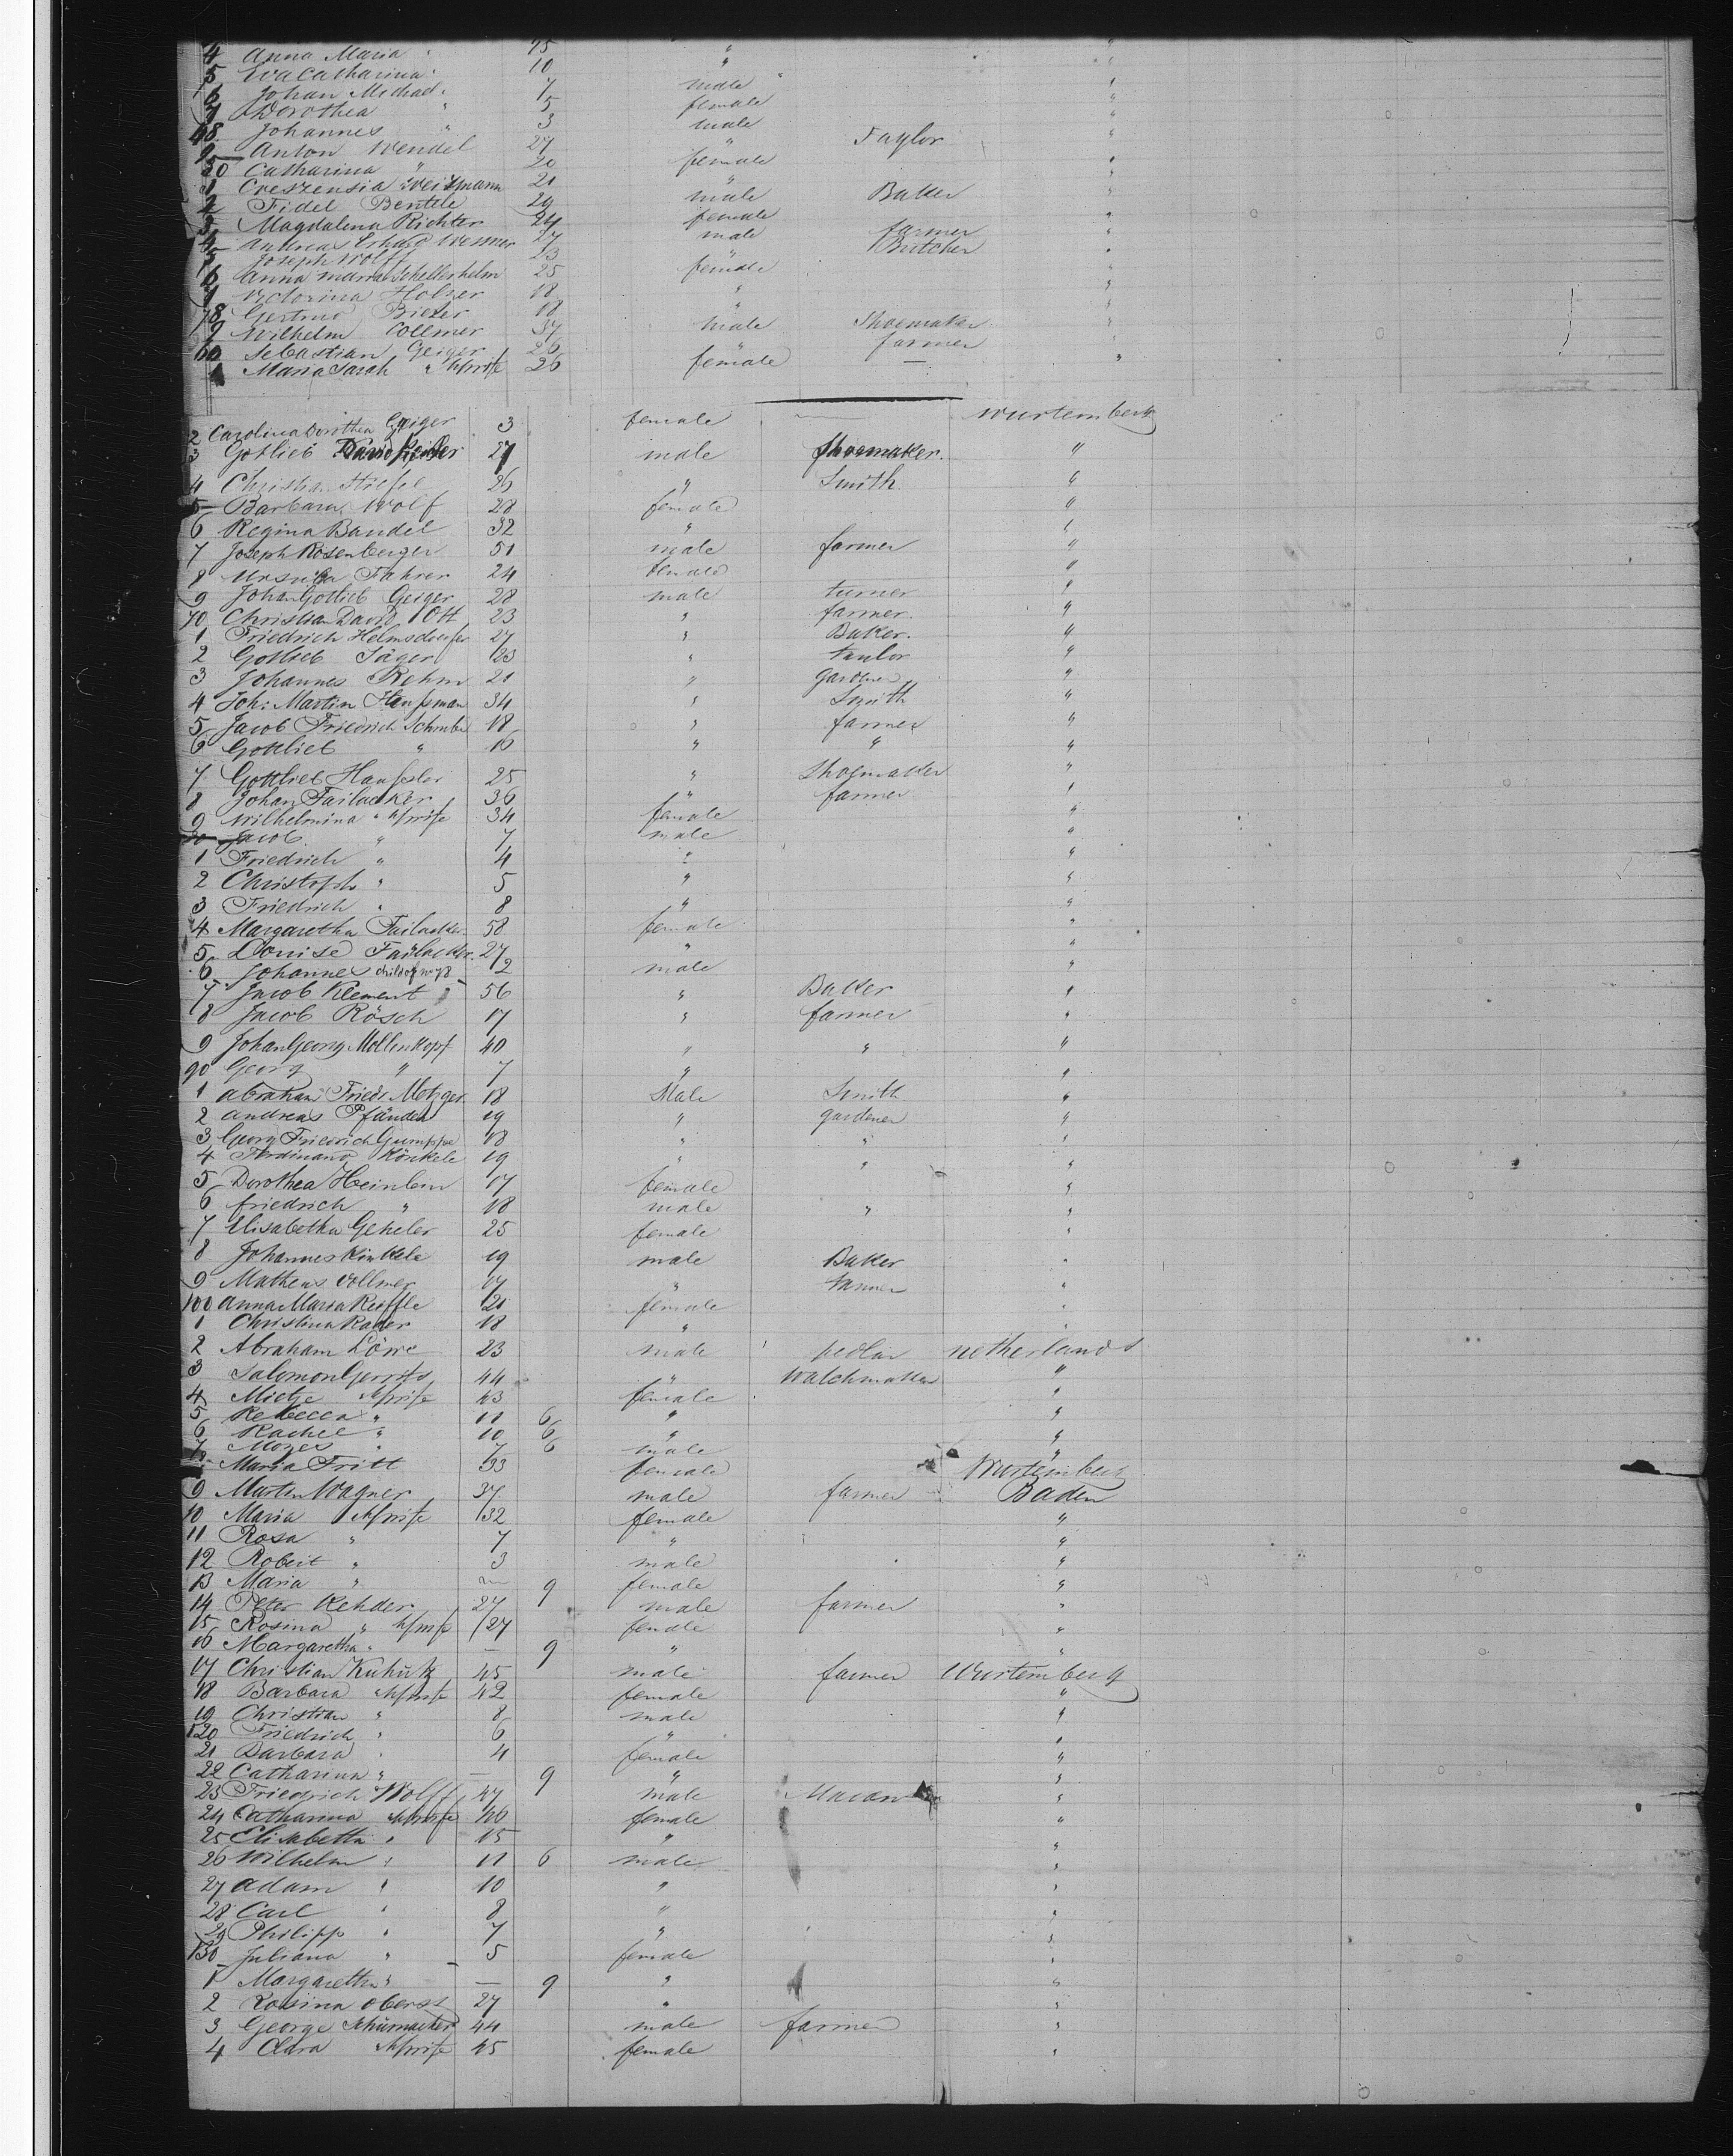 4 Anna Maria " 15 " "
5 Eva Catharina " 10 " "
6 Johan Michael " 7 male "
7 Dorothea " 5 female "
48 Johannes " 3 male "
9 Anton Wendel 27 " Taylor "
50 Catharina " 20 female "
1 Creszensia 21 " "
2 Fidel Bentele 29 male Baker "
3 Magdalena Richter 24 female "
4 Andreas Erhard 27 male farmer "
5 Joseph Wolff 23 " Butcher "
6 Anna Maria Schellerhelm 25 female "
7 Victorina Holzer 18 " "
58 18 " "
9 Wilhelm Vollmer 37 male Shoemaker "
60 Sebastian Geiger 26 " farmer "
1 Maria Sarah " h/wife 26 female — "
2 Carolina Dorothea Geiger 3 female — Wurtemberg
3 Gotlieb David 27 male Shoemaker. "
4 Christian Stiefel 26 " Smith "
5 Barbara Wolf 28 female "
6 Regina Bandel 32 " "
7 Joseph Rosenberger 51 male farmer "
8 Ursula Fahrer 24 female "
9 Johan Gotlieb Geiger 28 male turner "
70 Christian David Ott 23 " farmer. "
1 Friedrich 27 " Baker. "
2 Gotlieb Jäger 23 " taylor "
3 Johannes Rehm 21 " gardner "
4 Joh: Martin Haußman 34 " Smith "
5 Jacob Friedrich 18 " farmer "
6 Gottlieb " 16 " " "
7 Gottlieb Haußler 25 " Shoemaker "
8 Johan Failacker 36 " farmer "
9 Wilhelmina " h/wife 34 female "
80 Jacob " 7 male "
1 Friedrich " 4 " "
2 Christoph " 5 " "
3 Friedrich " 8 " "
4 Margaretha Failacker 58 female "
5 Louise Failacker 27 " "
6 Johannes child of no 78 2 male "
7 Jacob Klement 56 " Baker "
8 Jacob Rösch 17 " farmer "
9 Johan Georg Mollenkopf 40 " " "
90 Georg " 7 " "
1 Abraham Friedr Metzger 18 Male Smith "
2 Andreas Pfänder 19 " gardener "
3 Georg Friedrich Gumpper 18 " " "
4 Ferdinand Könkele 19 " " "
5 Dorothea Heinlen 17 female "
6 friedrich " 18 male " "
7 Elisabetha Geheler 25 female "
8 Johannes Kinkele 19 male Baker "
9 Matheus Vollmer 17 " tanner "
100 Anna Maria Reiffle 21 female "
1 Christina Rader 18 " "
2 Abraham Löwe 23 male pedlar netherlands
3 Salomon Gerrits 44 " Watchmaker "
4 Mietje h/wife 43 female "
5 Rebecca " 11 6 " "
6 Rachel " 10 6 " "
7 Mozes " 7 6 male "
Maria Fritt 33 female Wurtemberg
9 Martin Wagner 37 male farmer Baden
10 Maria h/wife 32 female "
11 Rosa " 7 " "
12 Robert " 3 male "
13 Maria " — 9 female "
14 Peter Kehder 27 male farmer "
15 Rosina " h/wife 27 female "
16 Margaretha " — 9 " "
17 Christian 45 male farmer Wurtemberg
18 Barbara h/wife 42 female "
19 Christian " 8 male "
120 Friedrich " 6 " "
21 Barbara " 4 female "
22 Catharina " — 9 " "
23 Friedrich Wolff 47 male "
24 Catharina h/wife 46 female "
25 Elisabetha " 15 " "
26 Wilhelm " 11 6 male "
27 Adam " 10 " "
28 Carl " 8 " "
29 Philipp " 7 " "
130 Juliana " 5 female "
1 Margaretha " — 9 " "
2 Rosina Oberst 27 " "
3 George Schumacher 44 male farmer "
4 Clara h/wife 45 female "